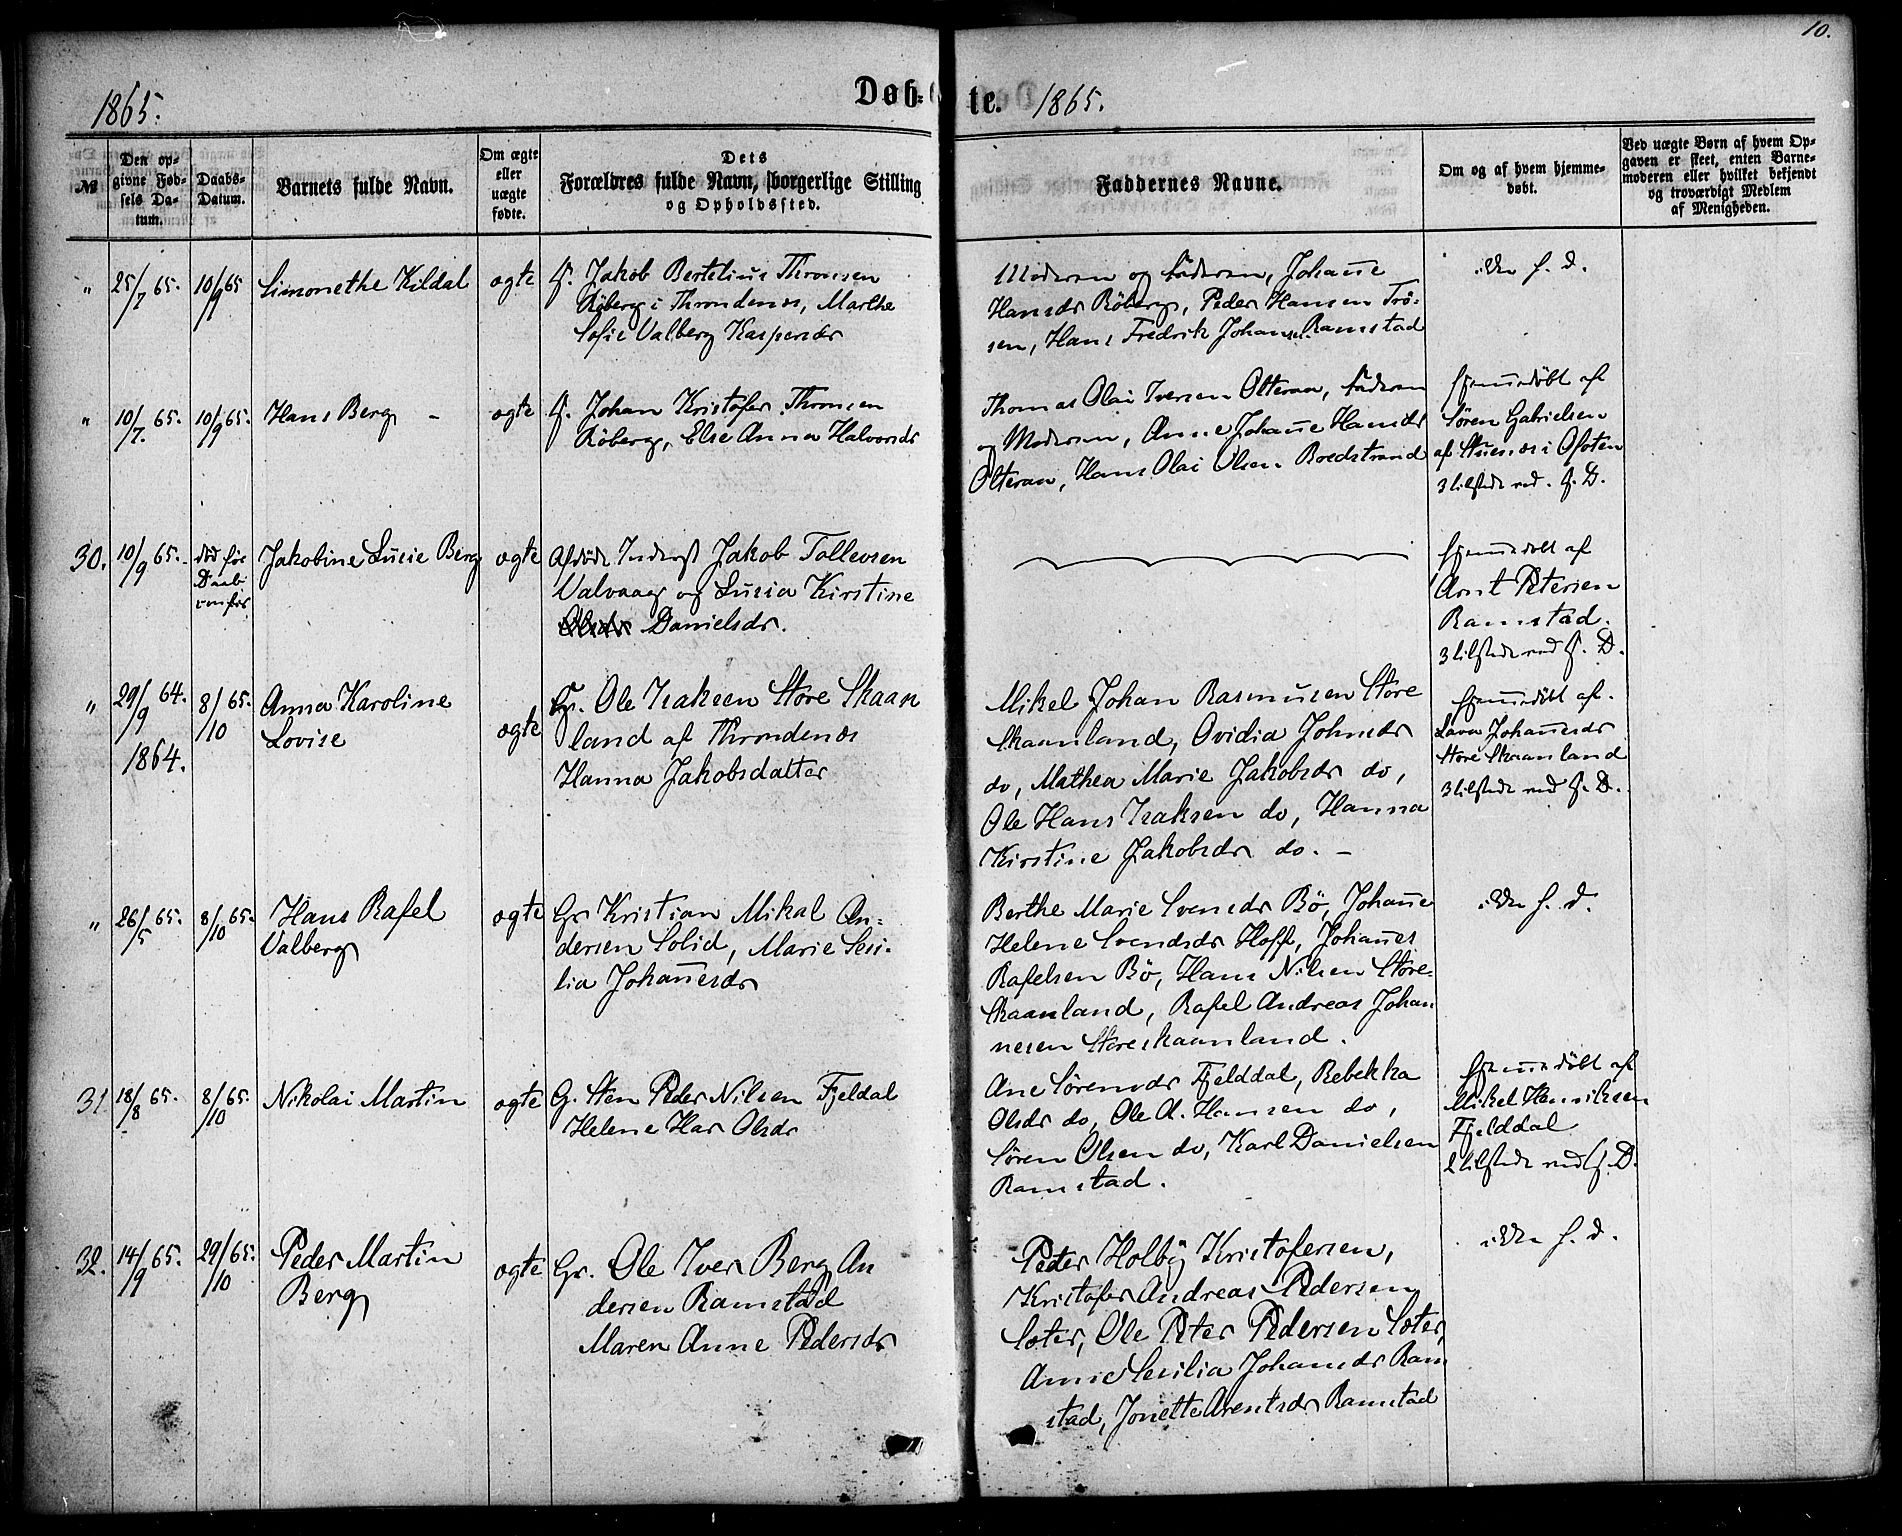 10.
1865. Døb- te. 1865.
№
Den op-
givne Fød-
sels Da-
tum.
Daabs-
Datum.
Barnets fulde Navn.
Om ægte
eller
uægte
fødte.
Dets
Forældres fulde Navn, borgerlige Stilling
og Opholdssted.
Faddernes Navne.
Om og af hvem hjemme-
døbt.
Ved uægte Børn af hvem Op-
gaven er skeet, enten Barne-
moderen eller hvilket bekjendt
og troværdigt Medlem
af Menigheden.
" 25/7 65. 10/9 65 Simonethe Kildal ogte
G. Jakob Bertelius Thronsen
Røberg i Throndenæs, Marthe
Sofie Valberg Kaspersdr
Moderen og Faderen, Johanne
Hansdr Røberg, Peder Hansen Trö-
sen, Hans Fredrik Johans. Ramstad
ikke h. d.
" 10/7. 65. 10/9 65. Hans Berg - ogte
G. Johan Kristofer Thronsen
Røberg, Else Anna Halvorsdr
Thomas Olai Iversen Olteran, Faderen
og Moderen, Anne Johanne Hansdr
Olteran, Hans Olai Olsen Boedstrand
hjemmedöbt af
Sören Gabrielsen
af Stuenæs i Ofoten
3 tilstede ved H. D.
30. 10/9 65. död før
Daab
Jakobine Lusie Berg ogte
Afdöde Inderst Jakob Tollevsen
Valvaag og Lusia Kirstine
Olsdr Danielsdr.
hjemmedöbt af
Arnt Petersen
Ramstad.
3 tilstede ved H. D.
" 29/9 64. 1864. 8/10 65. Anna Karoline
Lovise
ogte
G. Ole Isaksen Store Skaan
land af Throndenæs
Hanna Jakobsdatter
Mikel Johan Rasmusen Store
Skaanland, Ovidia Johnsdr
do, Mathea Marie Jakobsdr do,
Ole Hans Isaksen do, Hanna
Kirstine Jakobsdr do. -
hjemmedöbt af
Lava Johannesdr
Store Skaanland
3 tilstede ved H. D.
" 26/5 65. 8/10 65. Hans Rafel
Valberg
ogte
Gr Kristian Mikal An-
dersen Solid, Marie Sesi-
lia Johannesdr
Berthe Marie Svensdr Bö, Johanne
Helene Svendsdr Hoffe, Johannes
Rafelsen Bö, Hans Nilsen Store-
Skaanland, Rafel Andreas Johan
nesen Storeskaanland.
ikke h. d.
31 18/8 65. 8/10 65. Nikolai Martin ogte
G. Sten Peder Nilsen Fjeldal
Helene Har Olsdr
Ane Sörensdr Fjelddal, Rebekka
Olsdr do, Ole A. Hansen do,
Sören Olsen do, Karl Danielsen
Ramstad.
hjemmedöbt af
Mikel Henriksen
Fjelddal
2 tilstede ved H. D.
32. 14/9 65. 29/10 65. Peder Martin
Berg
ogte
Gr. Ole Iver Berg An
dersen Ramstad
Maren Anne Pedersdr
Peder Holbÿ Kristofersen,
Kristofer Andreas Pedersen
Sæter, Ole Peter Pedersen Sæter,
Anne Sesilia Johansdr Ram
stad, Jonette Arentsdr Ramstad
ikke h. d.